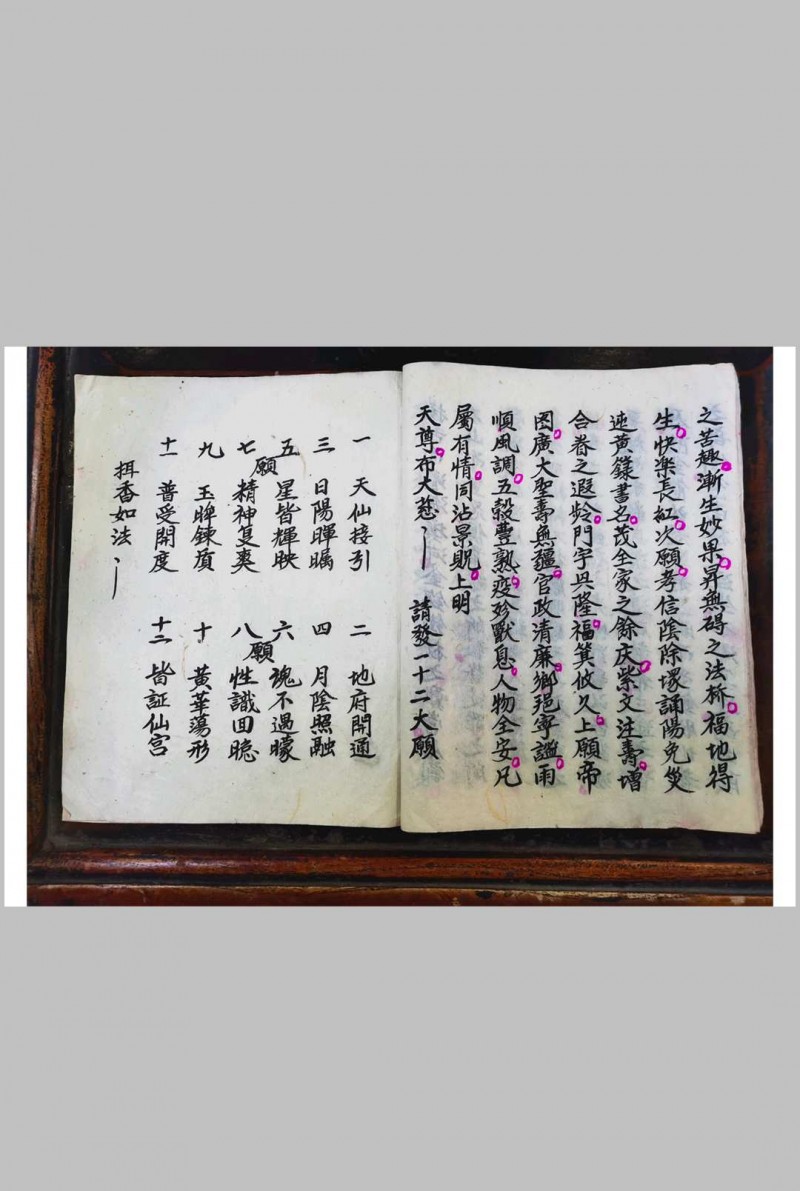 之苦趣漸生妙果昇無碍之法桥福地得
生快楽長紅次願孝信陰除塚誦陽免災
速黃籙書名茂全家之餘庆紫文注壽增
合眷之遐齡門宇具隆福箕攸久上願帝
图廣大聖壽無疆官政清廉鄉邑寧謐雨
順風調五穀豐熟疫殄獸息人物全安凡
屬有情同沾景貺上明
天尊布大慈 請發一十二大願
一 天仙接引 二 地府開通
三 日陽暉瞩 四 月陰照融
願
五 星皆輝映 六 魂不過曚
七 精神复爽 八 性識回聰
願
九 玉眸鍊質 十 黃華蕩形
十一 普受開度 十二 皆証仙宫
拜香如法